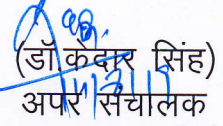 (डॉ.केदार सिंह)
अपर संचालक